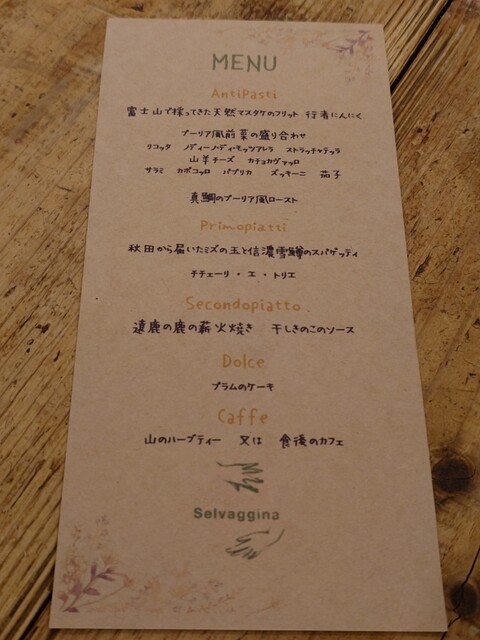 MENU
AntiPasti
富士山で採ってきた天然マスタケのフリット 行者にんにく
プーリア風前菜の盛り合わせ
リコッタ ノディーノ・ディ・モッツアレラ ストラッチャテッラ
山羊チーズ カチョカヴァッロ
サラミ カポコッロ パプリカ ズッキーニ 茄子
真鯛のプーリア風ロースト
Primopiatti
秋田から届いたミズの玉と信濃雪鱒のスパゲッティ
チチェーリ ・ エ ・ トリエ
Secondopiatto
遠鹿の鹿の薪火焼き 干しきのこのソース
Dolce
プラムのケーキ
Caffe
山のハーブティー 又は 食後のカフェ
Selvaggina